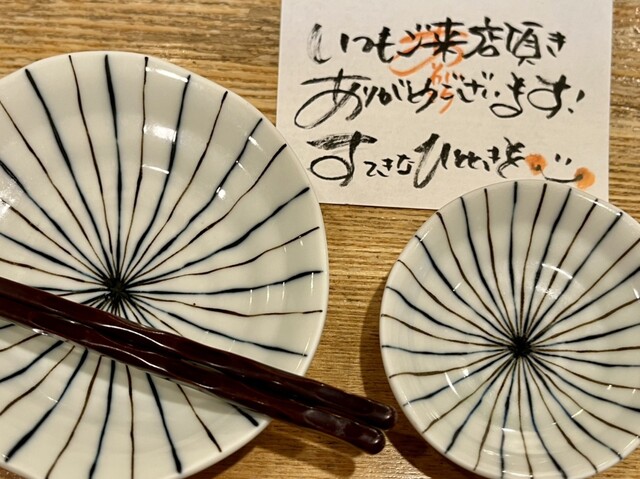 いつもご来店頂き
ありがとうございます!
すてきなひとときを